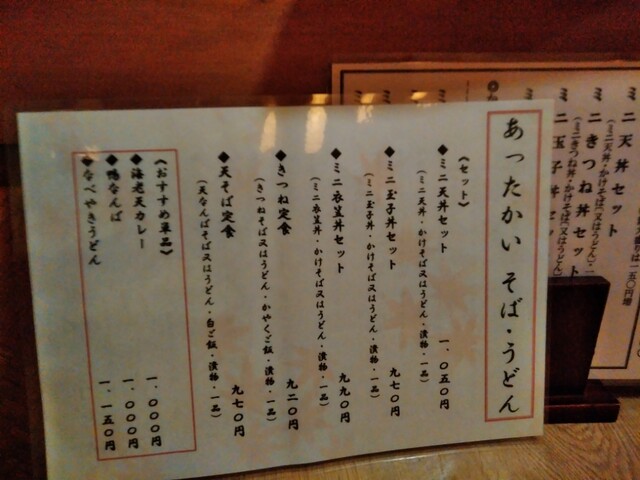 あったかい そば・うどん
《セット》
◆ミニ天丼セット 一、〇五〇円
（ミニ天丼・かけそば又はうどん・漬物・一品）
◆ミニ玉子丼セット 九七〇円
（ミニ玉子丼・かけそば又はうどん・漬物・一品）
◆ミニ衣笠丼セット 九九〇円
（ミニ衣笠丼・かけそば又はうどん・漬物・一品）
◆きつね定食 九二〇円
（きつねそば又はうどん・かやくご飯・漬物・一品）
◆天そば定食 九七〇円
（天なんばそば又はうどん・白ご飯・漬物・一品）
《おすすめ単品》
◆海老天カレー 一、〇〇〇円
◆鴨なんば 一、〇〇〇円
◆なべやきうどん 一、一五〇円
ミニ天丼セット
（ミニ天丼・かけそば（又はうどん）
ミニきつね丼セット
（ミニきつね丼・かけそば（又はうどん）
ミニ玉子丼セ